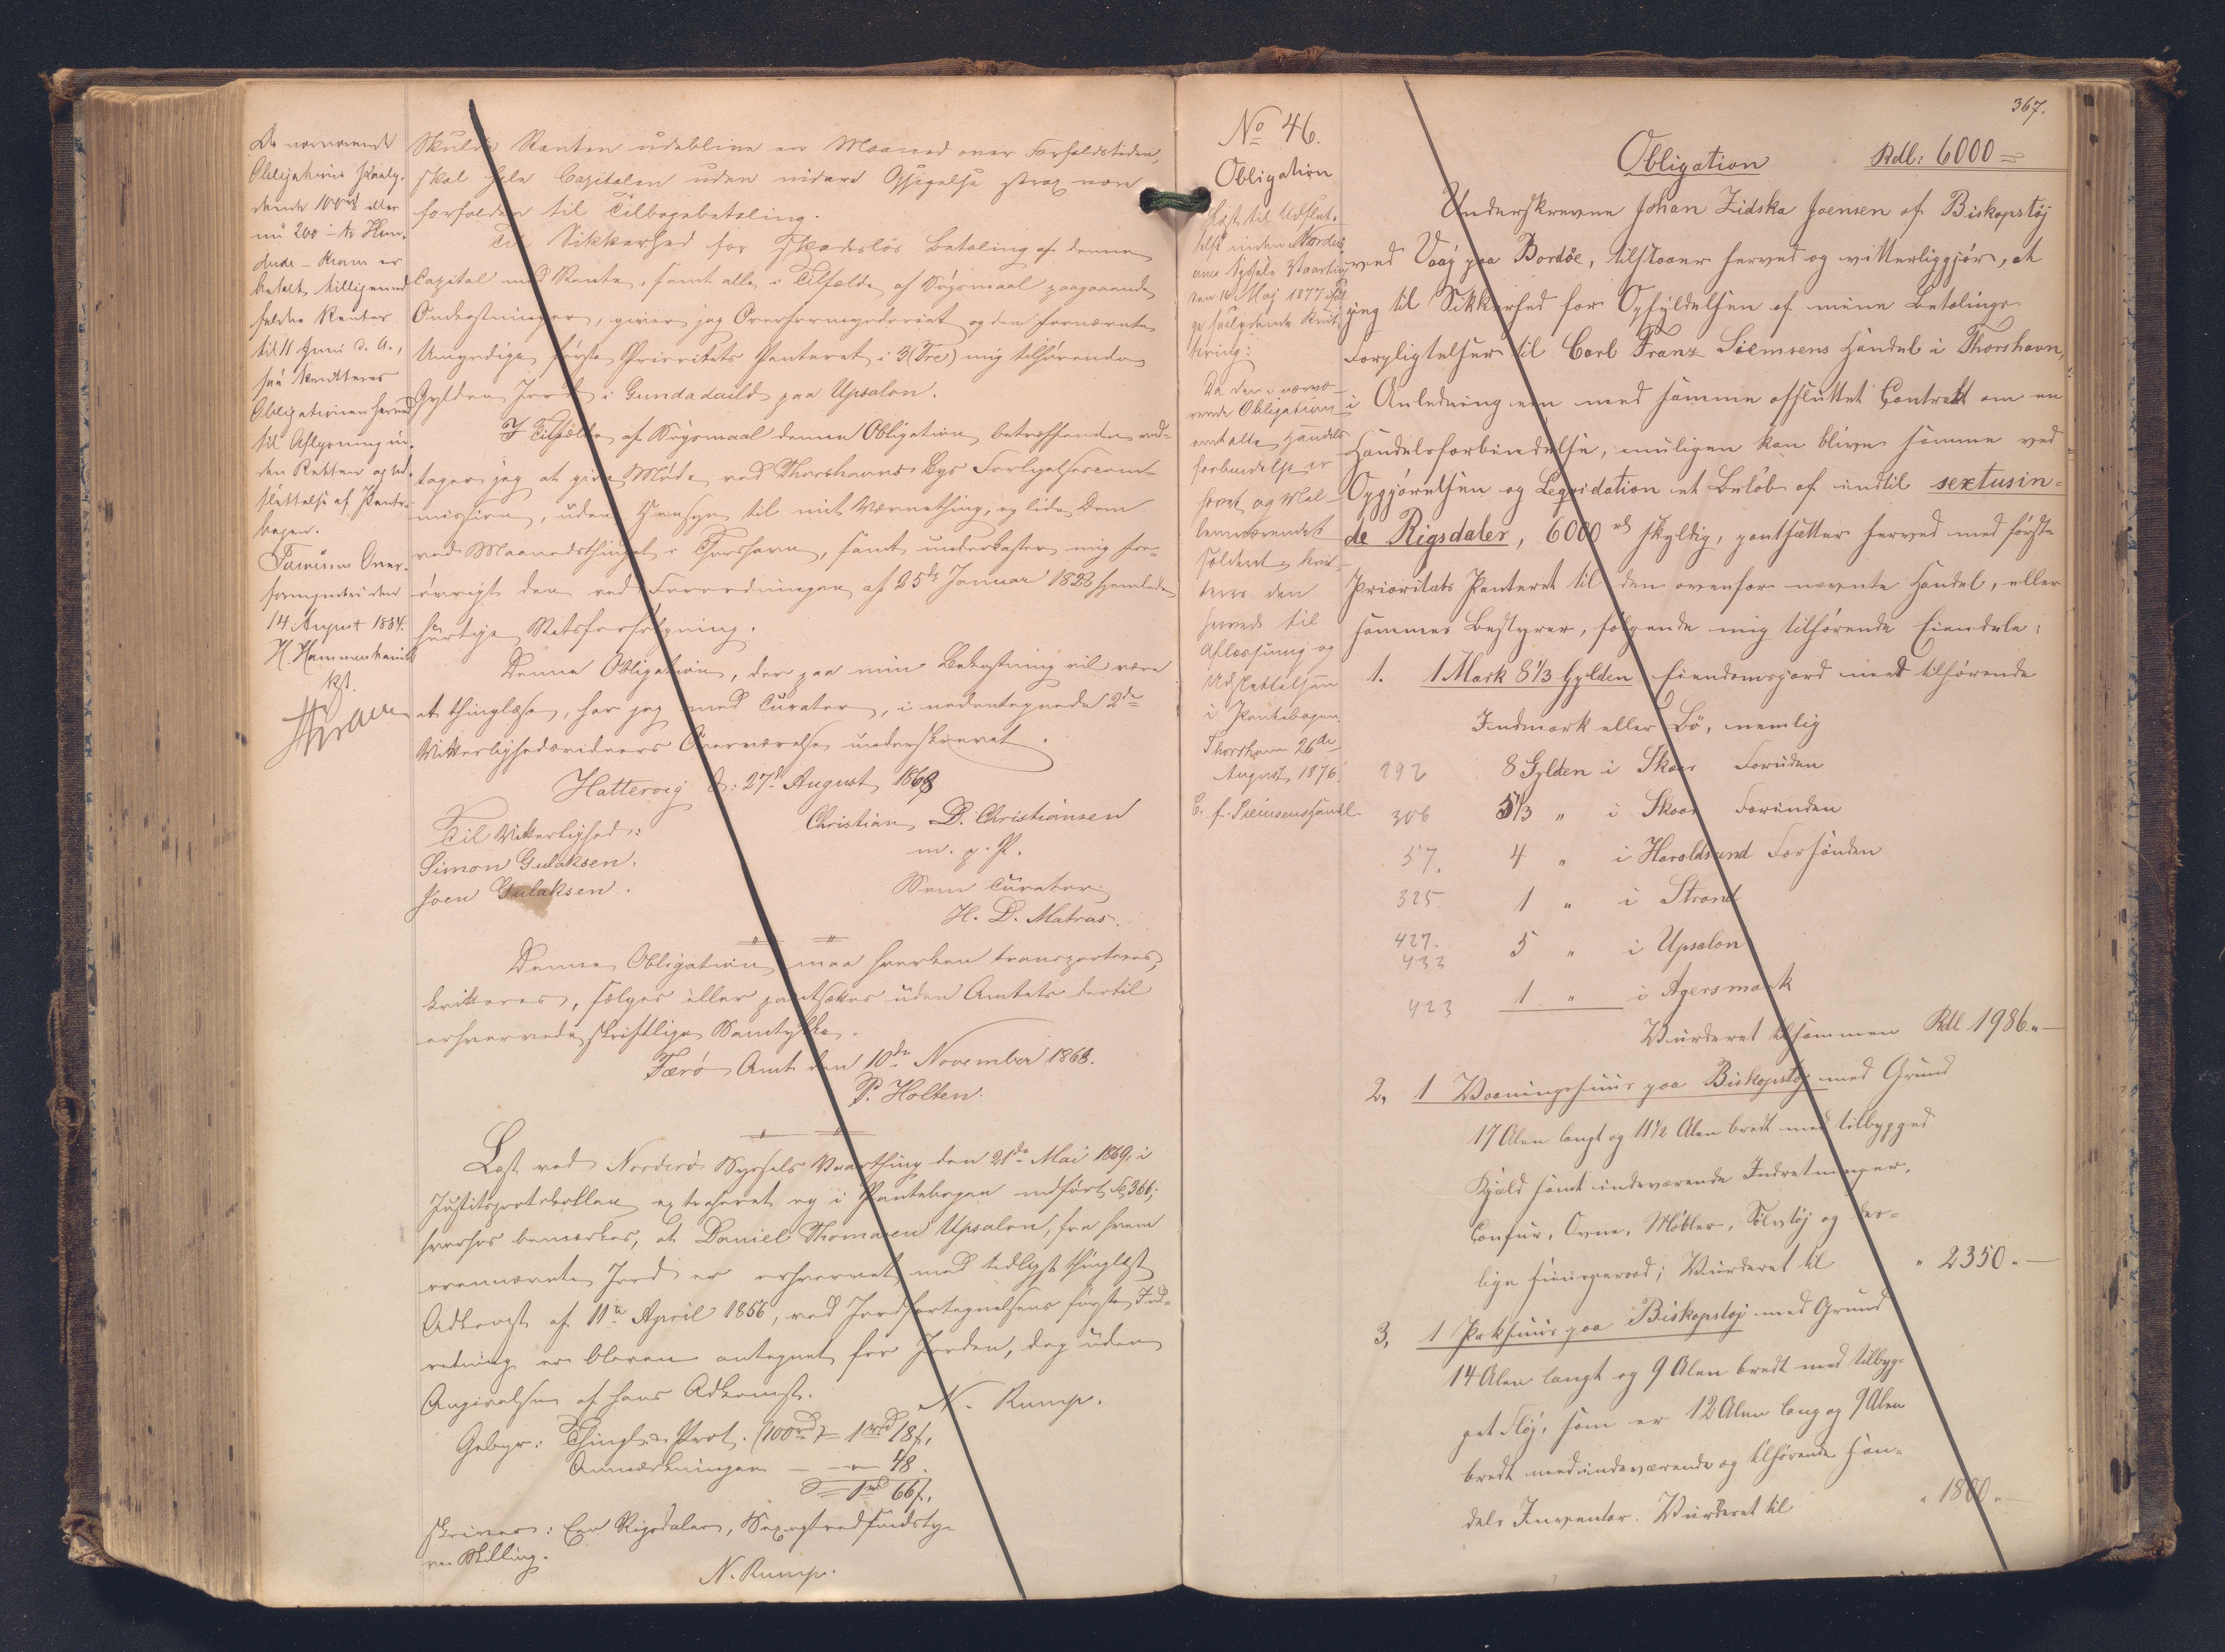 De nærværende
Obligations paaly-
dende 100 rd eller
nu 200 - to Hun-
drede - Kroner er
betalt tilligemed
Renter
til 11 Juni d. A.,
saa kvitteres
Obligationen herved
til Aflysning in-
den Retten og Ud-
slettelse af Pante-
bogen.
Færøernes Over-
formynderi den
14 August 1884.
H. Hammershaimb
kst.
Skulde Renten udeblive en Maaned over Forfaldstiden,
skal hele Capitalen uden videre Opsigelse strax være
forfalden til Tilbagebetaling.
Til Sikkerhed for skadesløs Betaling af denne
Capital med Rente, samt alle i Tilfælde af Søgsmaal paagaaende
Omkostninger, giver jeg Overformynderiet og den fornævnte
Umyndige første Prioritets Panteret i 3 (Tre) mig tilhørende
Gylden Jord i Gundadaild paa Upsalon.
I Tilfælde af Søgsmaal denne Obligation betræffende ved-
tager jeg at give Møde ved Thorshavns Byes Forligelsescom-
mission, uden Hensyn til mit Værnething, og lide Dom
ved Maanedsthinget i Thorshavn, samt underkaster mig for-
øvrigt den ved Forordningen af 25de Januar 1828 hjemlede
hurtige Retsforfølgning.
Denne Obligation, der paa min Bekostning vil være
at thinglæse, har jeg med Curator, i nedentegnede 2de
Vitterlighedsvidners Overværelse underskrevet.
Hattervig d: 27d August 1868
Til Vitterlighed: Christian D. Christiansen
Simon Gulaksen. m. p. P.
Joen Gulaksen. Som Curator
H. D. Matras.
Denne Obligation maa hverken transporteres,
kvitteres, sælges eller pantsættes uden Amtets dertil
erhvervede skriftlige Samtykke.
Færø Amt den 10de November 1868.
P. Holten.
Læst ved Norderø Syssels Vaarthing den 21de Mai 1869, i
Justitsprotokollen extraheret og i Pantebogen indført Fo 366;
hvorhos bemærkes, at Daniel Thomasen Upsalon, fra hvem
ovennævnte Jord er erhvervet med tinglyst
Adkomst af 11te April 1856, ved Jordfortegnelsens første Ind-
retning er bleven antegnet for Jorden, dog uden
Angivelse af hans Adkomst.
N. Rump.
Gebyr: Thingl. & Prot. (100 rd) = 1 rd 18 s,
Anmærkningen — 48.
= 1 rd 66 s,
skriver: Een Rigsdaler, Sex og tredsindsty-
ve Skilling.
N. Rump.
367.
No 46.
Obligation
Læst til Udslet-
telse inden Norder-
øernes Syssels Vaarting
den 16 Maj 1877 
saalydende Kvit-
tering:
Da den i nærvæ-
rende Obligation
omtalte Handels
forbindelse er
hævet og Mel-
lemværendet
kvit-
teres den
herved til
Aflæsning og
Udslettelsen
i Pantebogen.
Thorshavn 26de
August 1876
C. F. Siemsens Handel
Obligation Rdl: 6000 =
Underskrevne Johan Zidska Joensen af Biskopstøj
ved Vaag paa Bordøe, tilstaaer herved og vitterliggjør, at
jeg til Sikkerhed for Opfyldelsen af mine Betalings
Forpligtelser til Carl Franz Siemsens Handel i Thorshavn,
i Anledning en med samme afsluttet Contrakt om en
Handelsforbindelse, muligen kan blive samme ved
Opgjørelsen og Leqvidation et Beløb af indtil sextusin-
de Rigsdaler, 6000 rd skyldig, pantsætter herved med første
Prioritets Panteret til den ovenfor nævnte Handel, eller
sammes Bestyrer, følgende mig tilhørende Eiendele:
1. 1 Mark 8 1/3 Gylden Eiendomsjord med tilhørende
Indmark eller Bø, nemlig
292 8 Gylden i Skaar Foruden
306 5 1/3 " i Skaar Forinden
57. 4 " i Haraldsund Forsønden
325. 1 " i Strand
427.
433 5 " i Upsalon
423 1 " i Agersmark
Vurderet tilsammen Rdl 1986 " —
2, 1 Vaaningshuus paa Biskopstøj med Grund
17 Alen langt og 11 1/2 Alen bredt med tilbygget
Kjæld samt indeværende Indretninger,
Comfur, Ovne, Møbler, Sølvtøj og des-
lige Huusgeraad; Vurderet til " 2350 " —
3, 1 Pakhuus paa Biskopstøj med Grund
14 Alen langt og 9 Alen bredt med tilbyg-
get Fløj, som er 12 Alen lang og 9 Alen
bredt med indeværende og tilhørende Han-
dels Inventar. Vurderet til " 1800 " —